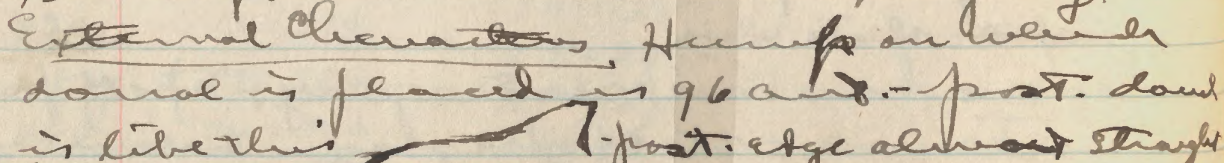 External Characters. Hump on which
dorsal is placed is 96 ant.- post. dorsal
is like this - post. edge almost straight